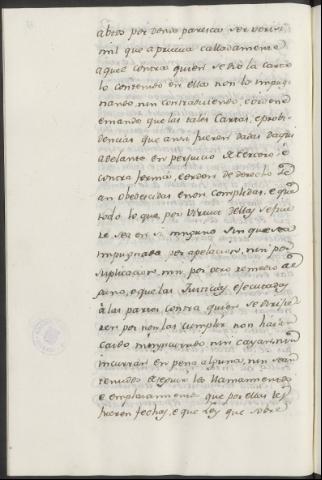 abtos por donde paresca ser veris
mil que aprueva calladamente
aquel contra quien se dio la carta
lo contenido en ellas non lo impug
nando, nin contradiciendo, e ordenó
e mando que las tales Cartas, e probi
dencias que ansi fueron dadas daqui
adelante en perjuicio de tercero, é
contra forma, e orden de derecho se
an obedecidas e non complidas, e que
todo lo que por virtud dellas se ficie
re sea en si ninguno sin que sea
impugnada por apelacion, nin por
suplicacion nin por otro remedio al
guno, e que las Justicias, e Executores
á las partes contra quien se dirixe
ren por non las cumplir non haian
caido nin incurrido nin cayan, nin
incurran en pena alguna, nin sean
tenudos de seguir los llamamientos
e emplazamientos que por ellas les
fueren fechos, e que Ley que sobre